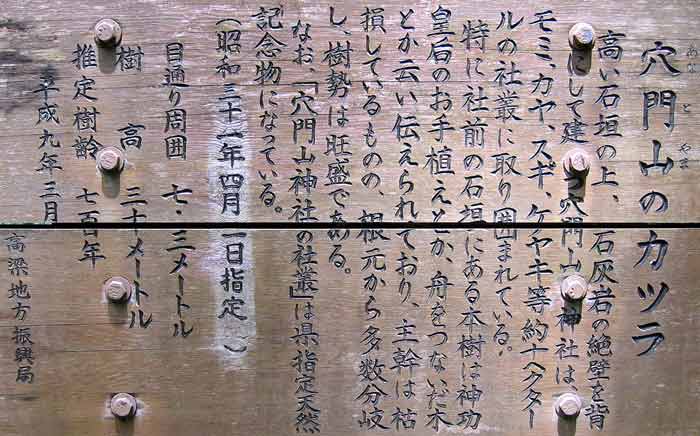 穴門山のカツラ
あなとやま
高い石垣の上、石灰岩の絶壁を背
にして建つ穴門山神社は、
モミ、カヤ、スギ、ケヤキ等約十ヘクター
ルの社叢に取り囲まれている。
特に社前の石垣にある本樹は神功
皇后のお手植えとか、舟をつないだ木
とか云い伝えられており、主幹は枯
損しているものの、根元から多数分岐
し、樹勢は旺盛である。
なお、「穴門山神社の社叢」は県指定天然
記念物になっている。
(昭和三十一年四月一日指定)
目通り周囲 七・三メートル
樹高 三十メートル
推定樹齢 七百年
平成九年三月
高梁地方振興局